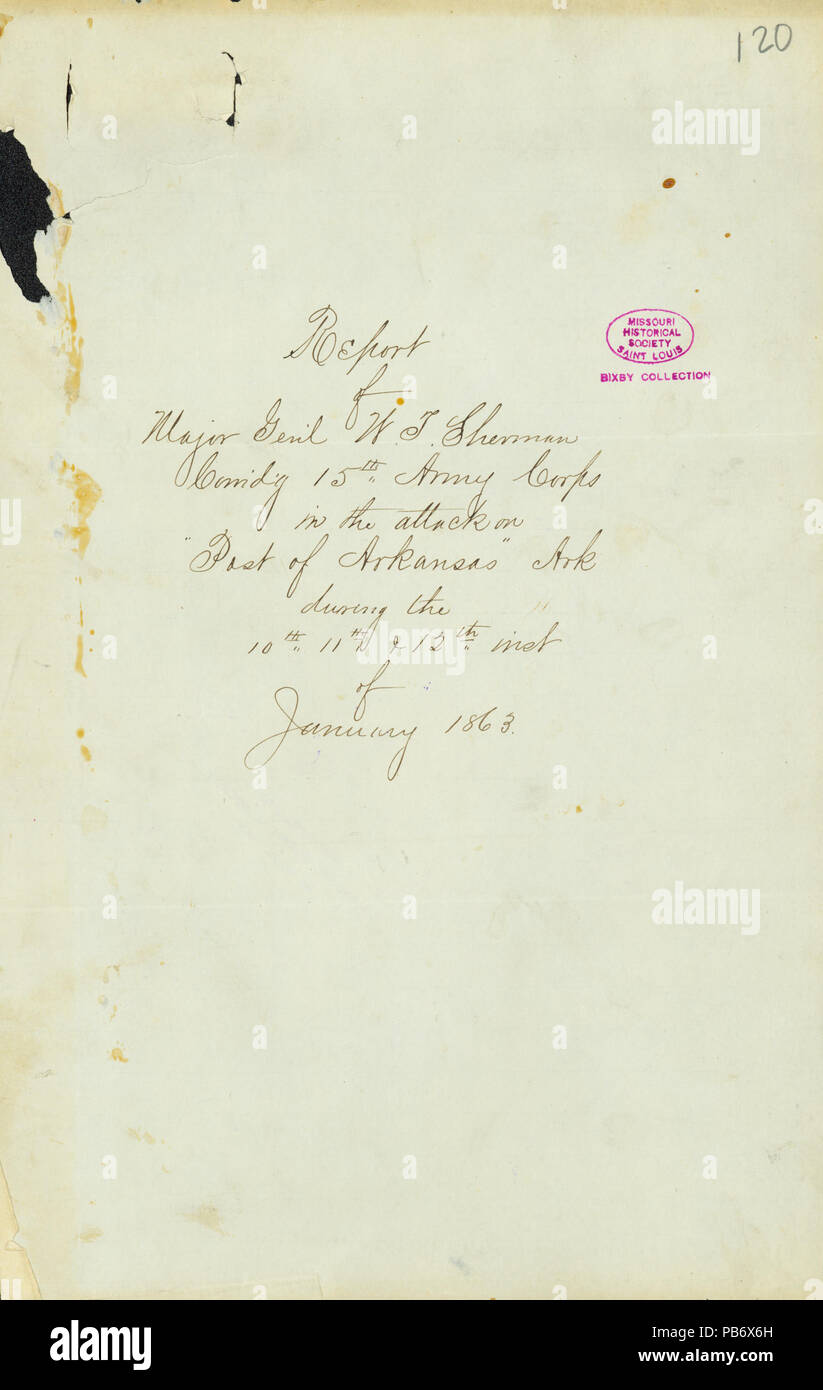 120
MISSOURI
HISTORICAL
SOCIETY
SAINT LOUIS
BIXBY COLLECTION
Report
of
Major Genl W. T. Sherman
Comd'g 15th Army Corps
in the attack on
"Post of Arkansas" Ark
during the "
10th 11th & 12th inst
of
January 1863.
alamy
alamy
a alamy stock photo
PB6X6H
www.alamy.com